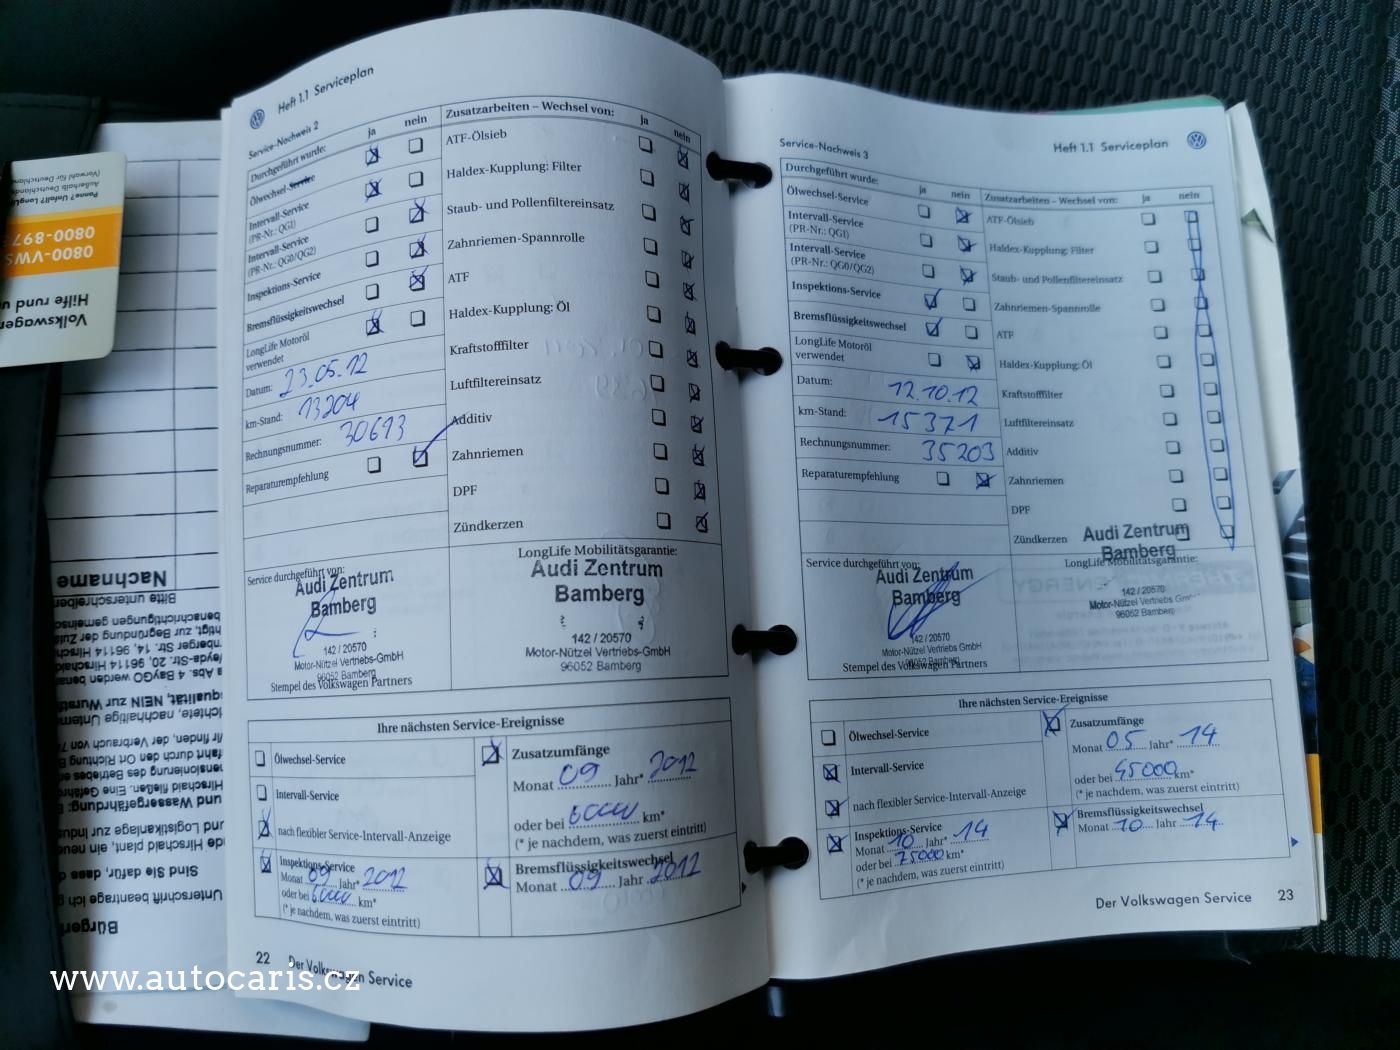 Heft 1.1 Serviceplan
Service-Nachweis 2
Durchgeführt wurde:
ja
nein
Ölwechsel-Service
Intervall-Service
(PR-Nr.: QG1)
Intervall-Service
(PR-Nr.: QG0/QG2)
Inspektions-Service
Bremsflüssigkeitswechsel
LongLife Motoröl
verwendet
Datum: 23.05.12
km-Stand: 13204
Rechnungsnummer: 30613
Reparaturempfehlung
Zusatzarbeiten – Wechsel von:
ja
nein
ATF-Ölsieb
Haldex-Kupplung: Filter
Staub- und Pollenfiltereinsatz
Zahnriemen-Spannrolle
ATF
Haldex-Kupplung: Öl
Kraftstofffilter
Luftfiltereinsatz
Additiv
Zahnriemen
DPF
Zündkerzen
Service durchgeführt von:
Audi Zentrum
Bamberg
142 / 20570
Motor-Nützel Vertriebs-GmbH
96052 Bamberg
Stempel des Volkswagen Partners
LongLife Mobilitätsgarantie:
Audi Zentrum
Bamberg
142 / 20570
Motor-Nützel Vertriebs-GmbH
96052 Bamberg
Ihre nächsten Service-Ereignisse
Ölwechsel-Service
Intervall-Service
nach flexibler Service-Intervall-Anzeige
Inspektions-Service
Monat 09 Jahr* 2012
oder bei 6000 km*
(* je nachdem, was zuerst eintritt)
Zusatzumfänge
Monat 09 Jahr* 2012
oder bei 6000 km*
(* je nachdem, was zuerst eintritt)
Bremsflüssigkeitswechsel
Monat 09 Jahr 2012
22 Der Volkswagen Service
Service-Nachweis 3
Heft 1.1 Serviceplan
Durchgeführt wurde:
ja
nein
Ölwechsel-Service
Intervall-Service
(PR-Nr.: QG1)
Intervall-Service
(PR-Nr.: QG0/QG2)
Inspektions-Service
Bremsflüssigkeitswechsel
LongLife Motoröl
verwendet
Datum: 12.10.12
km-Stand: 15371
Rechnungsnummer: 35203
Reparaturempfehlung
Zusatzarbeiten – Wechsel von:
ja
nein
ATF-Ölsieb
Haldex-Kupplung: Filter
Staub- und Pollenfiltereinsatz
Zahnriemen-Spannrolle
ATF
Haldex-Kupplung: Öl
Kraftstofffilter
Luftfiltereinsatz
Additiv
Zahnriemen
DPF
Zündkerzen
Service durchgeführt von:
Audi Zentrum
Bamberg
142 / 20570
Motor-Nützel Vertriebs-GmbH
96052 Bamberg
Stempel des Volkswagen Partners
Audi Zentrum
Bamberg
LongLife Mobilitätsgarantie:
142 / 20570
Motor-Nützel Vertriebs-Gm
96052 Bamberg
Ihre nächsten Service-Ereignisse
Ölwechsel-Service
Intervall-Service
nach flexibler Service-Intervall-Anzeige
Inspektions-Service
Monat 10 Jahr* 14
oder bei 75000 km*
(* je nachdem, was zuerst eintritt)
Zusatzumfänge
Monat 05 Jahr* 14
oder bei 45000 km*
(* je nachdem, was zuerst eintritt)
Bremsflüssigkeitswechsel
Monat 10 Jahr 14
Der Volkswagen Service 23
Volkswagen
Hilfe rund u
0800-VWS
0800-897
Panne? Unfall? LongLi
Außerhalb Deutschlands
(Vorwahl für Deutschlan
Bürger
Unterschrift beantrage ich g
Sind Sie dafür, dass d
de Hirschaid plant, ein neu
und Logistikanlage zur Indus
und Wassergefährdung:
Hirschaid fließen. Eine Gefähr
ensionierung des Betriebes
fahrt durch den Ort Richtung B
finden, der Verbrauch von
ichtete, nachhaltige Untern
qualität, NEIN zur
Abs. 4 BayGO werden benan
20, 96114 Hirschaid
nberger Str. 14, 96114 Hirsch
htigt, zur Begründung der Zulä
benachrichtigungen gemeinsch
Bitte unterschreiben
Nachname
www.autocaris.cz